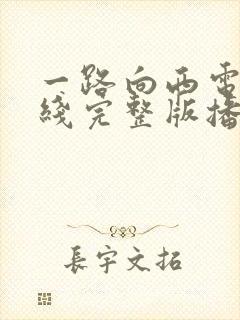 一路向西電
綫完整版播
長宇文拓